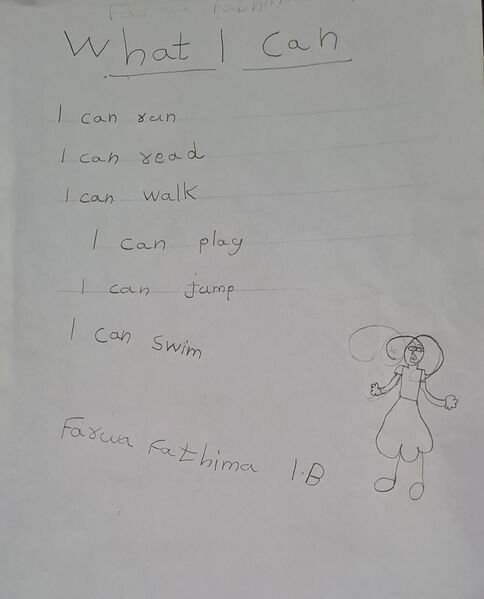 Farwa Fathima
What I Can
I can run
I can read
I can walk
I can play
I can jump
I can swim
Farwa Fathima 1.B